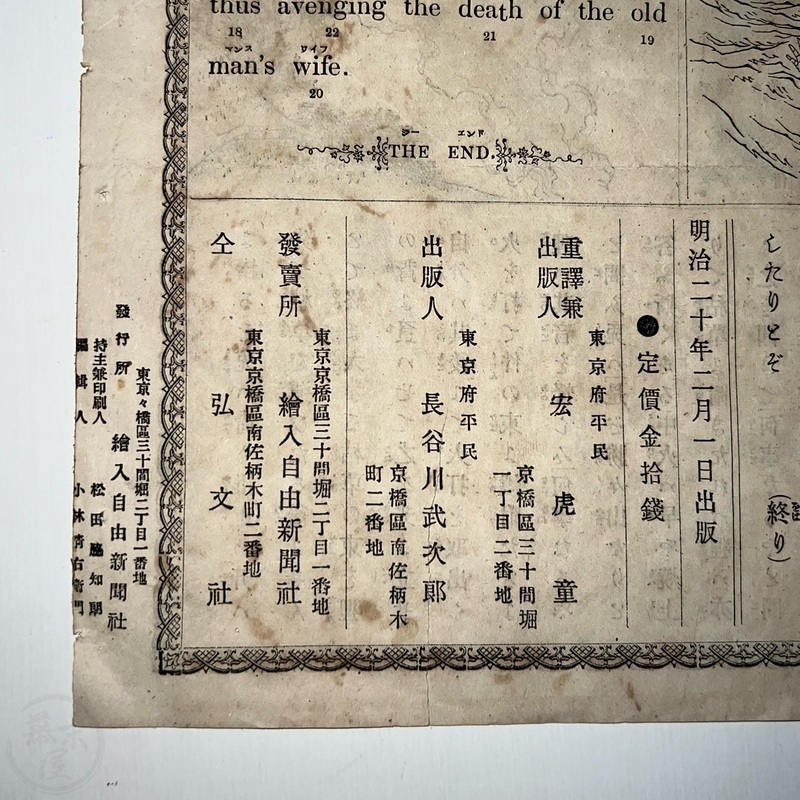 thus avenging the death of the old
18 22 21 19
マンス ワイフ
man's wife.
20
ジー エンド
THE END.
したりとぞ
(終り)
明治二十年二月一日出版
●定價金拾錢
東京府平民
重譯兼出版人 宏虎童
京橋區三十間堀一丁目二番地
東京府平民
出版人 長谷川武次郎
京橋區南佐柄木町二番地
東京京橋區三十間堀二丁目一番地
發賣所 繪入自由新聞社
東京京橋區南佐柄木町二番地
仝 弘文社
東京々橋區三十間堀二丁目一番地
發行所 繪入自由新聞社
持主兼印刷人 松田脇知朗
編輯人 小林清右衛門